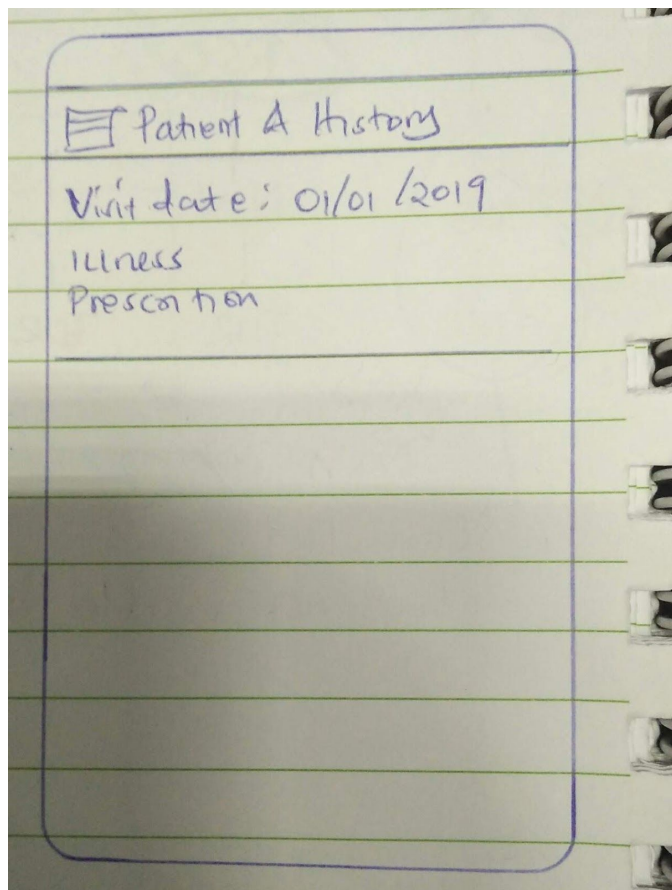 Patient A History
Visit date: 01/01/2019
Illness
Prescrition